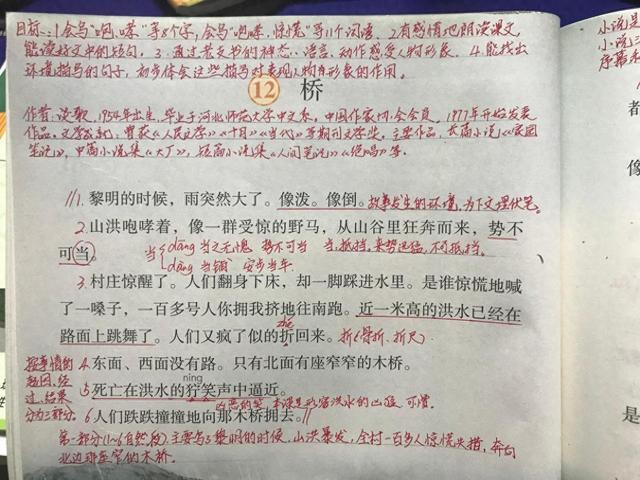 目标:1.会写"咆、嗥"等8个字,会写"咆哮、惊慌"等11个词语。2.有感情地朗读课文,
能读好文中的短句。3.通过老支书的神态、语言、动作感受人物形象。4.能找出
环境描写的句子,初步体会这些描写对表现人物形象的作用。
12 桥
作者:谈歌,1954年出生,毕业于河北师范大学中文系,中国作家协会会员。1977年开始发表
作品。文学成就:曾获《人民文学》《十月》《当代》等期刊文学奖。主要作品:长篇小说《家园
笔记》,中篇小说集《大厂》,短篇小说集《人间笔记》《绝唱》等。
1.黎明的时候,雨突然大了。像泼。像倒。故事发生的环境,为下文埋伏笔。
2.山洪咆哮着,像一群受惊的野马,从山谷里狂奔而来,势不
可当。当 dāng 当之无愧 势不可当 当:抵挡。来势迅猛,不可抵挡。
dàng 当铺 安步当车
3.村庄惊醒了。人们翻身下床,却一脚踩进水里。是谁惊慌地喊
了一嗓子,一百多号人你拥我挤地往南跑。近一米高的洪水已经在
路面上跳舞了。人们又疯了似的折回来。折(骨折、折尺)
zhé
按事情的
起因、经
过、结果
分为三部分。
4.东面、西面没有路。只有北面有座窄窄的木桥。
níng
5.死亡在洪水的狞笑声中逼近。
凶恶的笑 本课是形容洪水的凶猛 可憎
6.人们跌跌撞撞地向那木桥拥去。
第一部分(1~6自然段)主要写了黎明的时候,山洪暴发,全村一百多人惊慌失措,奔向
北边那座窄窄的木桥。
小说是
小说三
序幕和
者
都
是